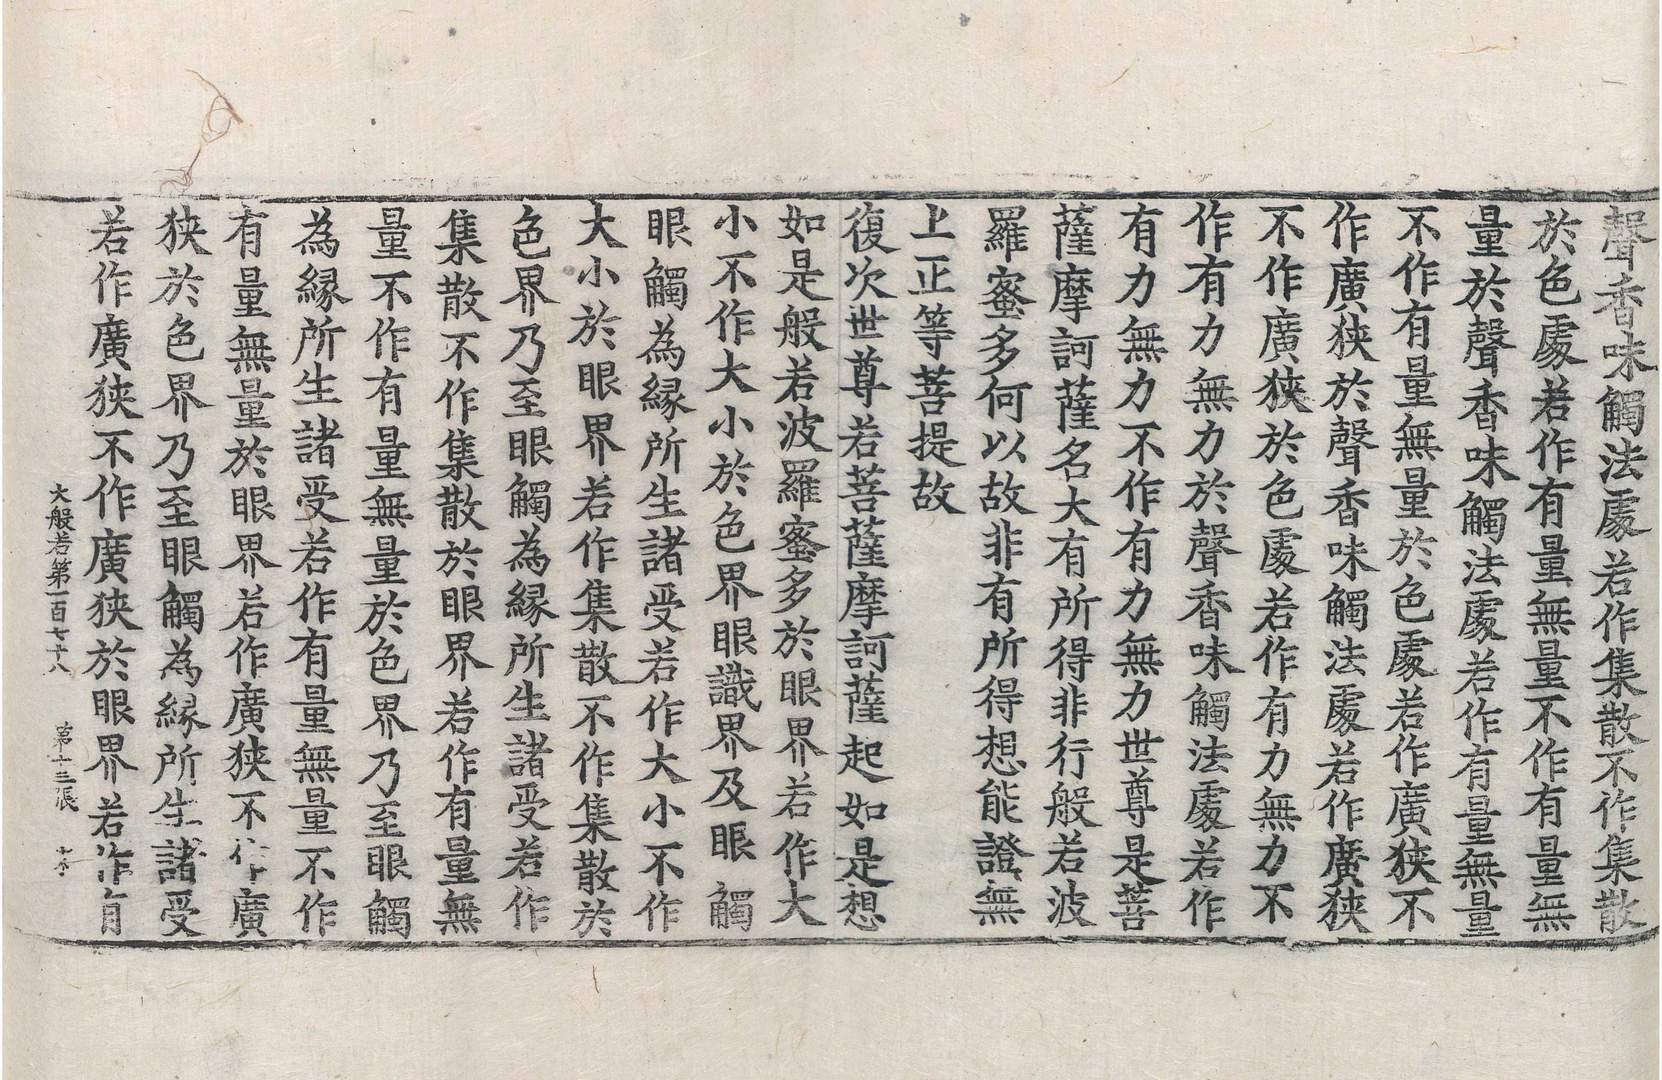 聲香味觸法處若作集散不作集散
於色處若作有量無量不作有量無
量於聲香味觸法處若作有量無量
不作有量無量於色處若作廣狹不
作廣狹於聲香味觸法處若作廣狹
不作廣狹於色處若作有力無力不
作有力無力於聲香味觸法處若作
有力無力不作有力無力世尊是菩
薩摩訶薩名大有所得非行般若波
羅蜜多何以故非有所得想能證無
上正等菩提故
復次世尊若菩薩摩訶薩起如是想
如是般若波羅蜜多於眼界若作大
小不作大小於色界眼識界及眼觸
眼觸為緣所生諸受若作大小不作
大小於眼界若作集散不作集散於
色界乃至眼觸為緣所生諸受若作
集散不作集散於眼界若作有量無
量不作有量無量於色界乃至眼觸
為緣所生諸受若作有量無量不作
有量無量於眼界若作廣狹不作廣
狹於色界乃至眼觸為緣所生諸受
若作廣狹不作廣狹於眼界若作有
大般若第一百七十八 第十三張